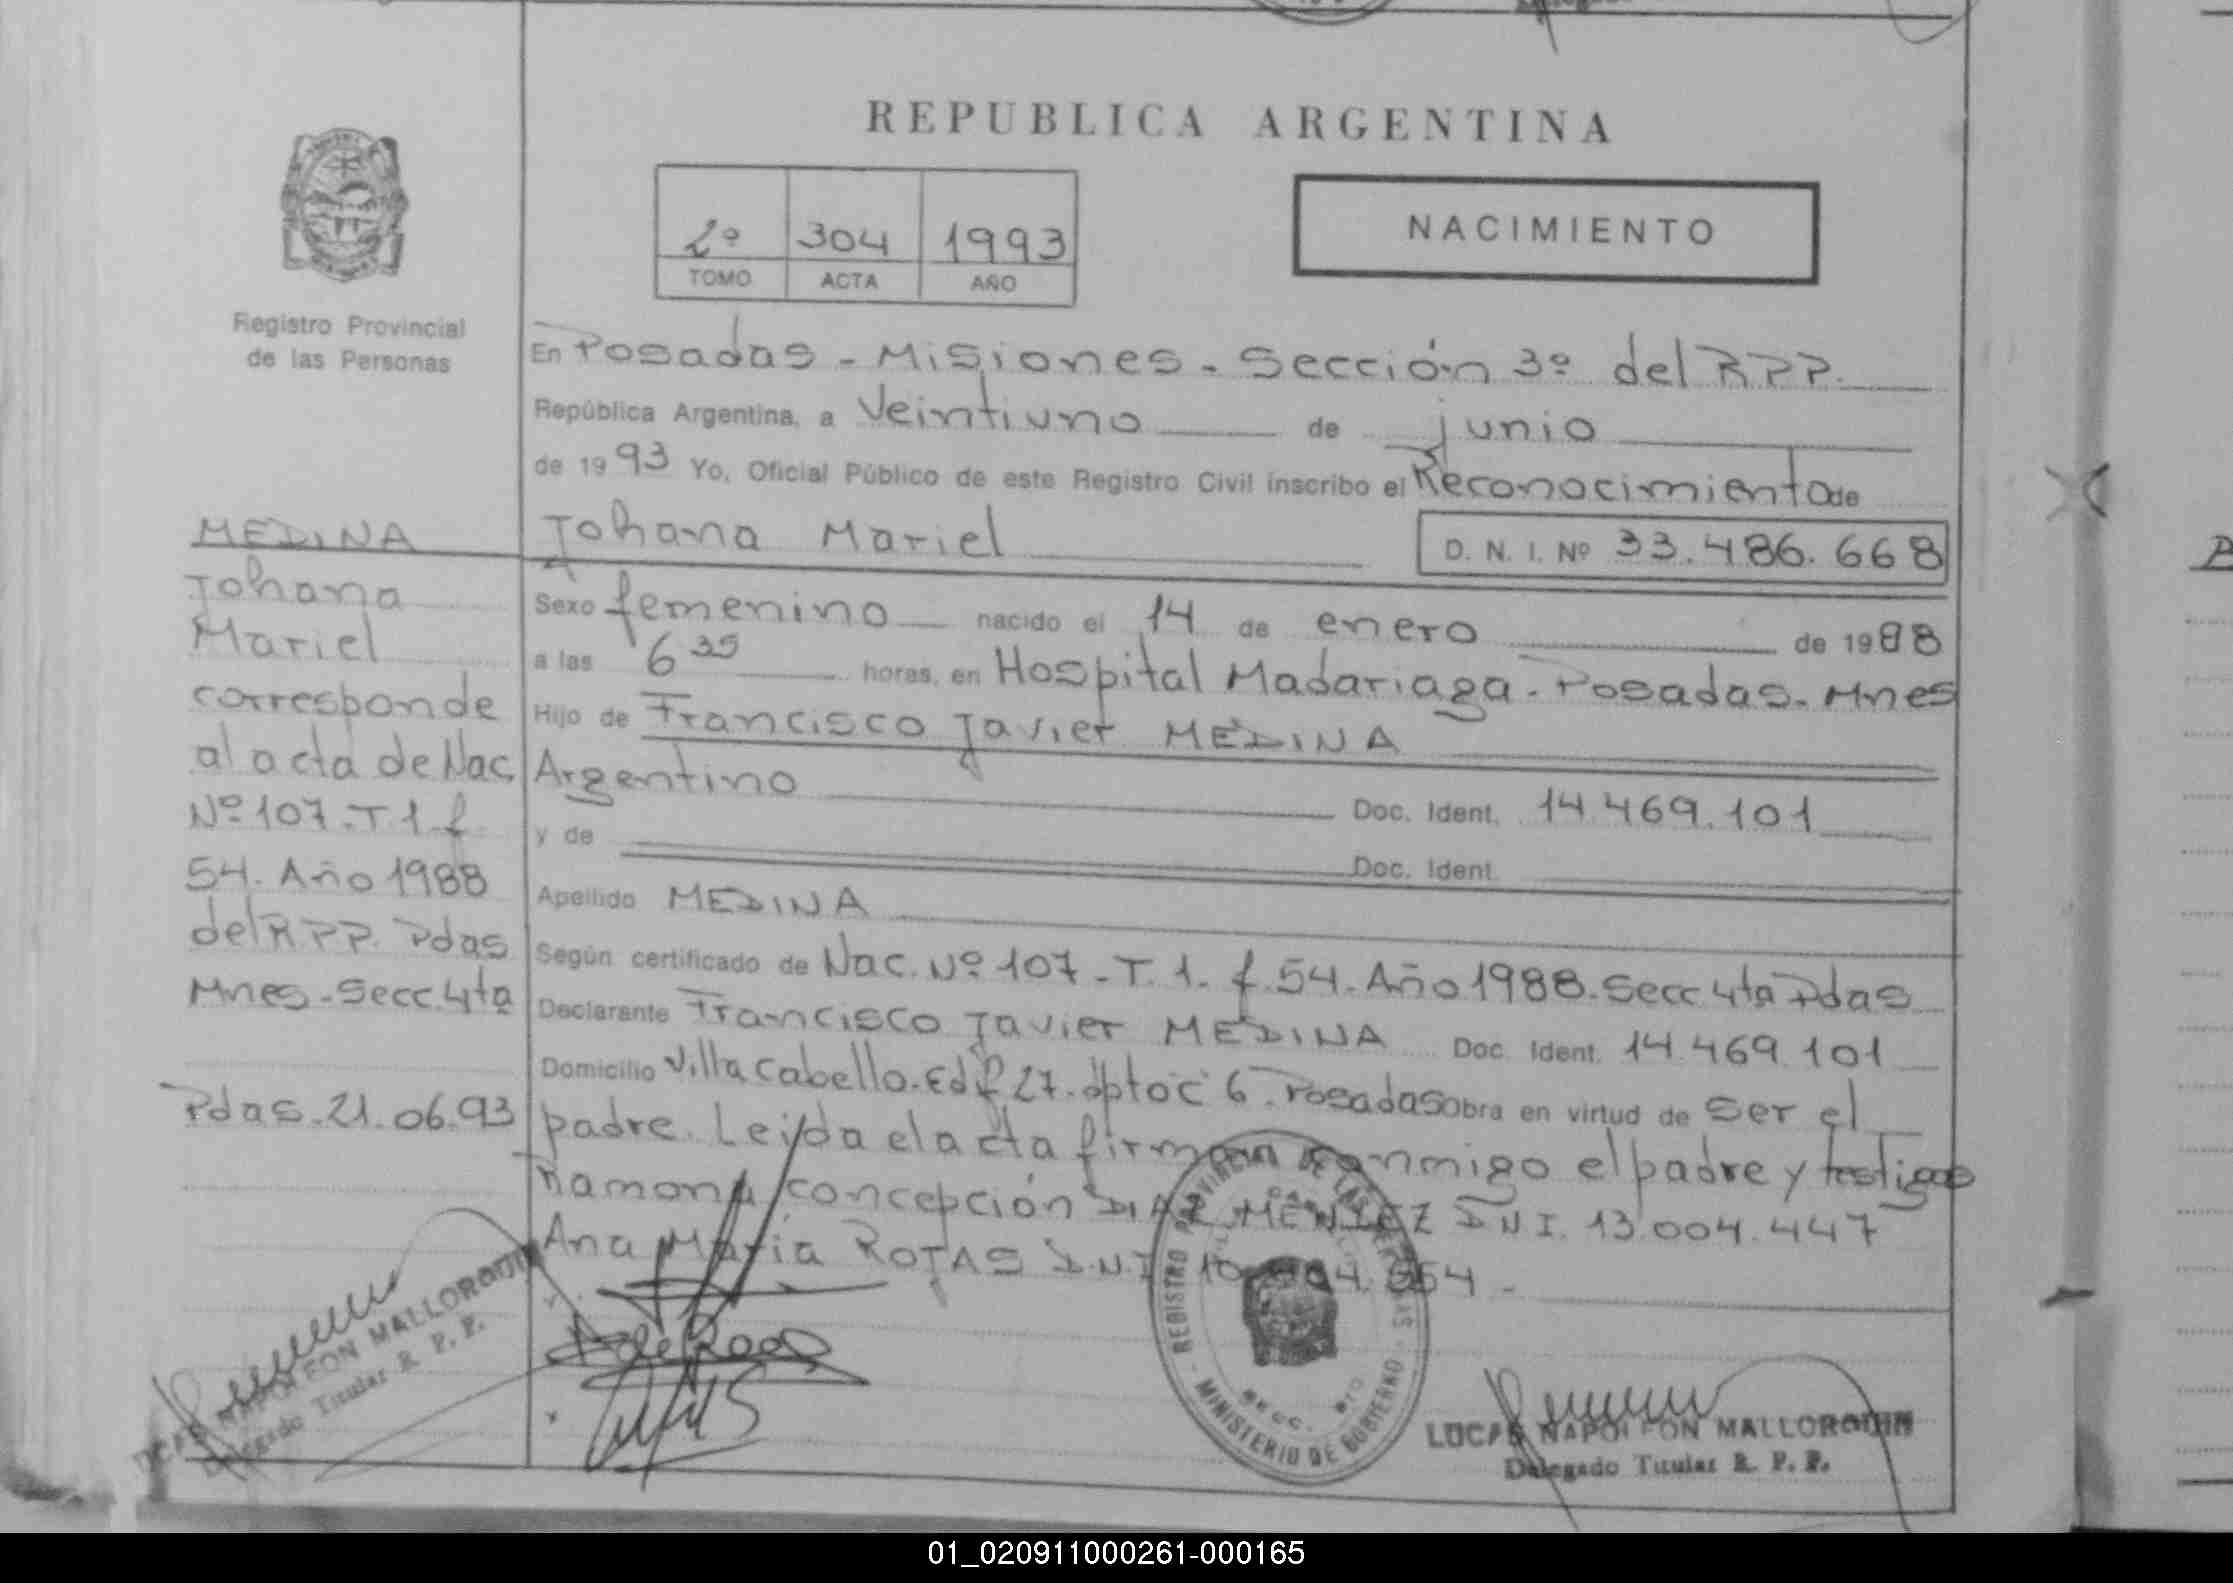 REPUBLICA ARGENTINA
2º 304 1993
TOMO ACTA AÑO
NACIMIENTO
Registro Provincial
de las Personas
En Posadas - Misiones - Sección 3º del RPP.
República Argentina, a Veintiuno de junio
de 1993 Yo, Oficial Público de este Registro Civil inscribo el Reconocimiento de
Johana Mariel D. N. I. Nº 33.486.668
Sexo femenino nacido el 14 de enero de 1988
a las 6 35 horas, en Hospital Madariaga - Posadas - Mnes
Hijo de Francisco Javier MEDINA
Argentino Doc. Ident. 14.469.101
y de Doc. Ident.
Apellido MEDINA
Según certificado de Nac. Nº 107 - T. 1. f. 54. Año 1988. Secc 4ta Pdas
Declarante Francisco Javier MEDINA Doc. Ident. 14.469.101
Domicilio Villa Cabello. Edf 27. dpto "C" 6. Posadas obra en virtud de ser el
padre. Leida el acta firman conmigo el padre y testigos
Ramona Concepción DIAZ MENDEZ DNI. 13.004.447
Ana María ROJAS D.N.I
MEDINA
Johana
Mariel
corresponde
al acta de Nac
Nº 107 - T 1 - f
54. Año 1988
del RPP. Pdas
Mnes - Secc. 4ta
Pdas. 21.06.93
NAPOLEON MALLORQUIN
Delegado Titular R. P. P.
REGISTRO PROVINCIAL DE LAS PERSONAS
SECC. 3ra
MINISTERIO DE GOBIERNO
LUCAS NAPOLEON MALLORQUIN
Delegado Titular R. P. P.
01_020911000261-000165